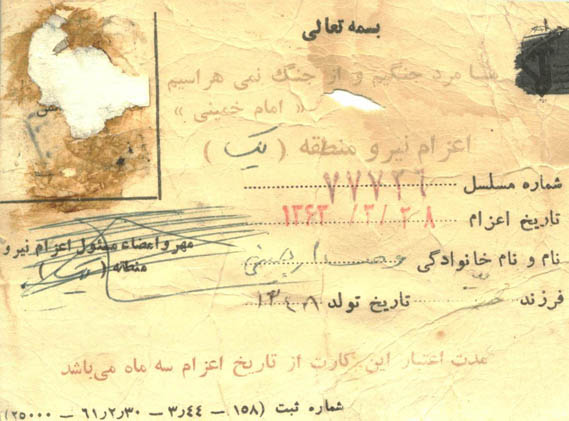 بسمه تعالی
ما مرد جنگیم و از جنگ نمی هراسیم
« امام خمینی »
اعزام نیرو منطقه ( یک )
شماره مسلسل ۷۷۷۲۶
تاریخ اعزام ۱۳۶۲/۳/۲۸
نام و نام خانوادگی
فرزند تاریخ تولد
مهر و امضاء مسئول اعزام نیرو
منطقه ( یک )
مدت اعتبار این کارت از تاریخ اعزام سه ماه می‌باشد
شماره ثبت (۱۵۸ – ۴۴ر۳ – ۳۰ر۲ر۶۱ – ۲۵۰۰۰)